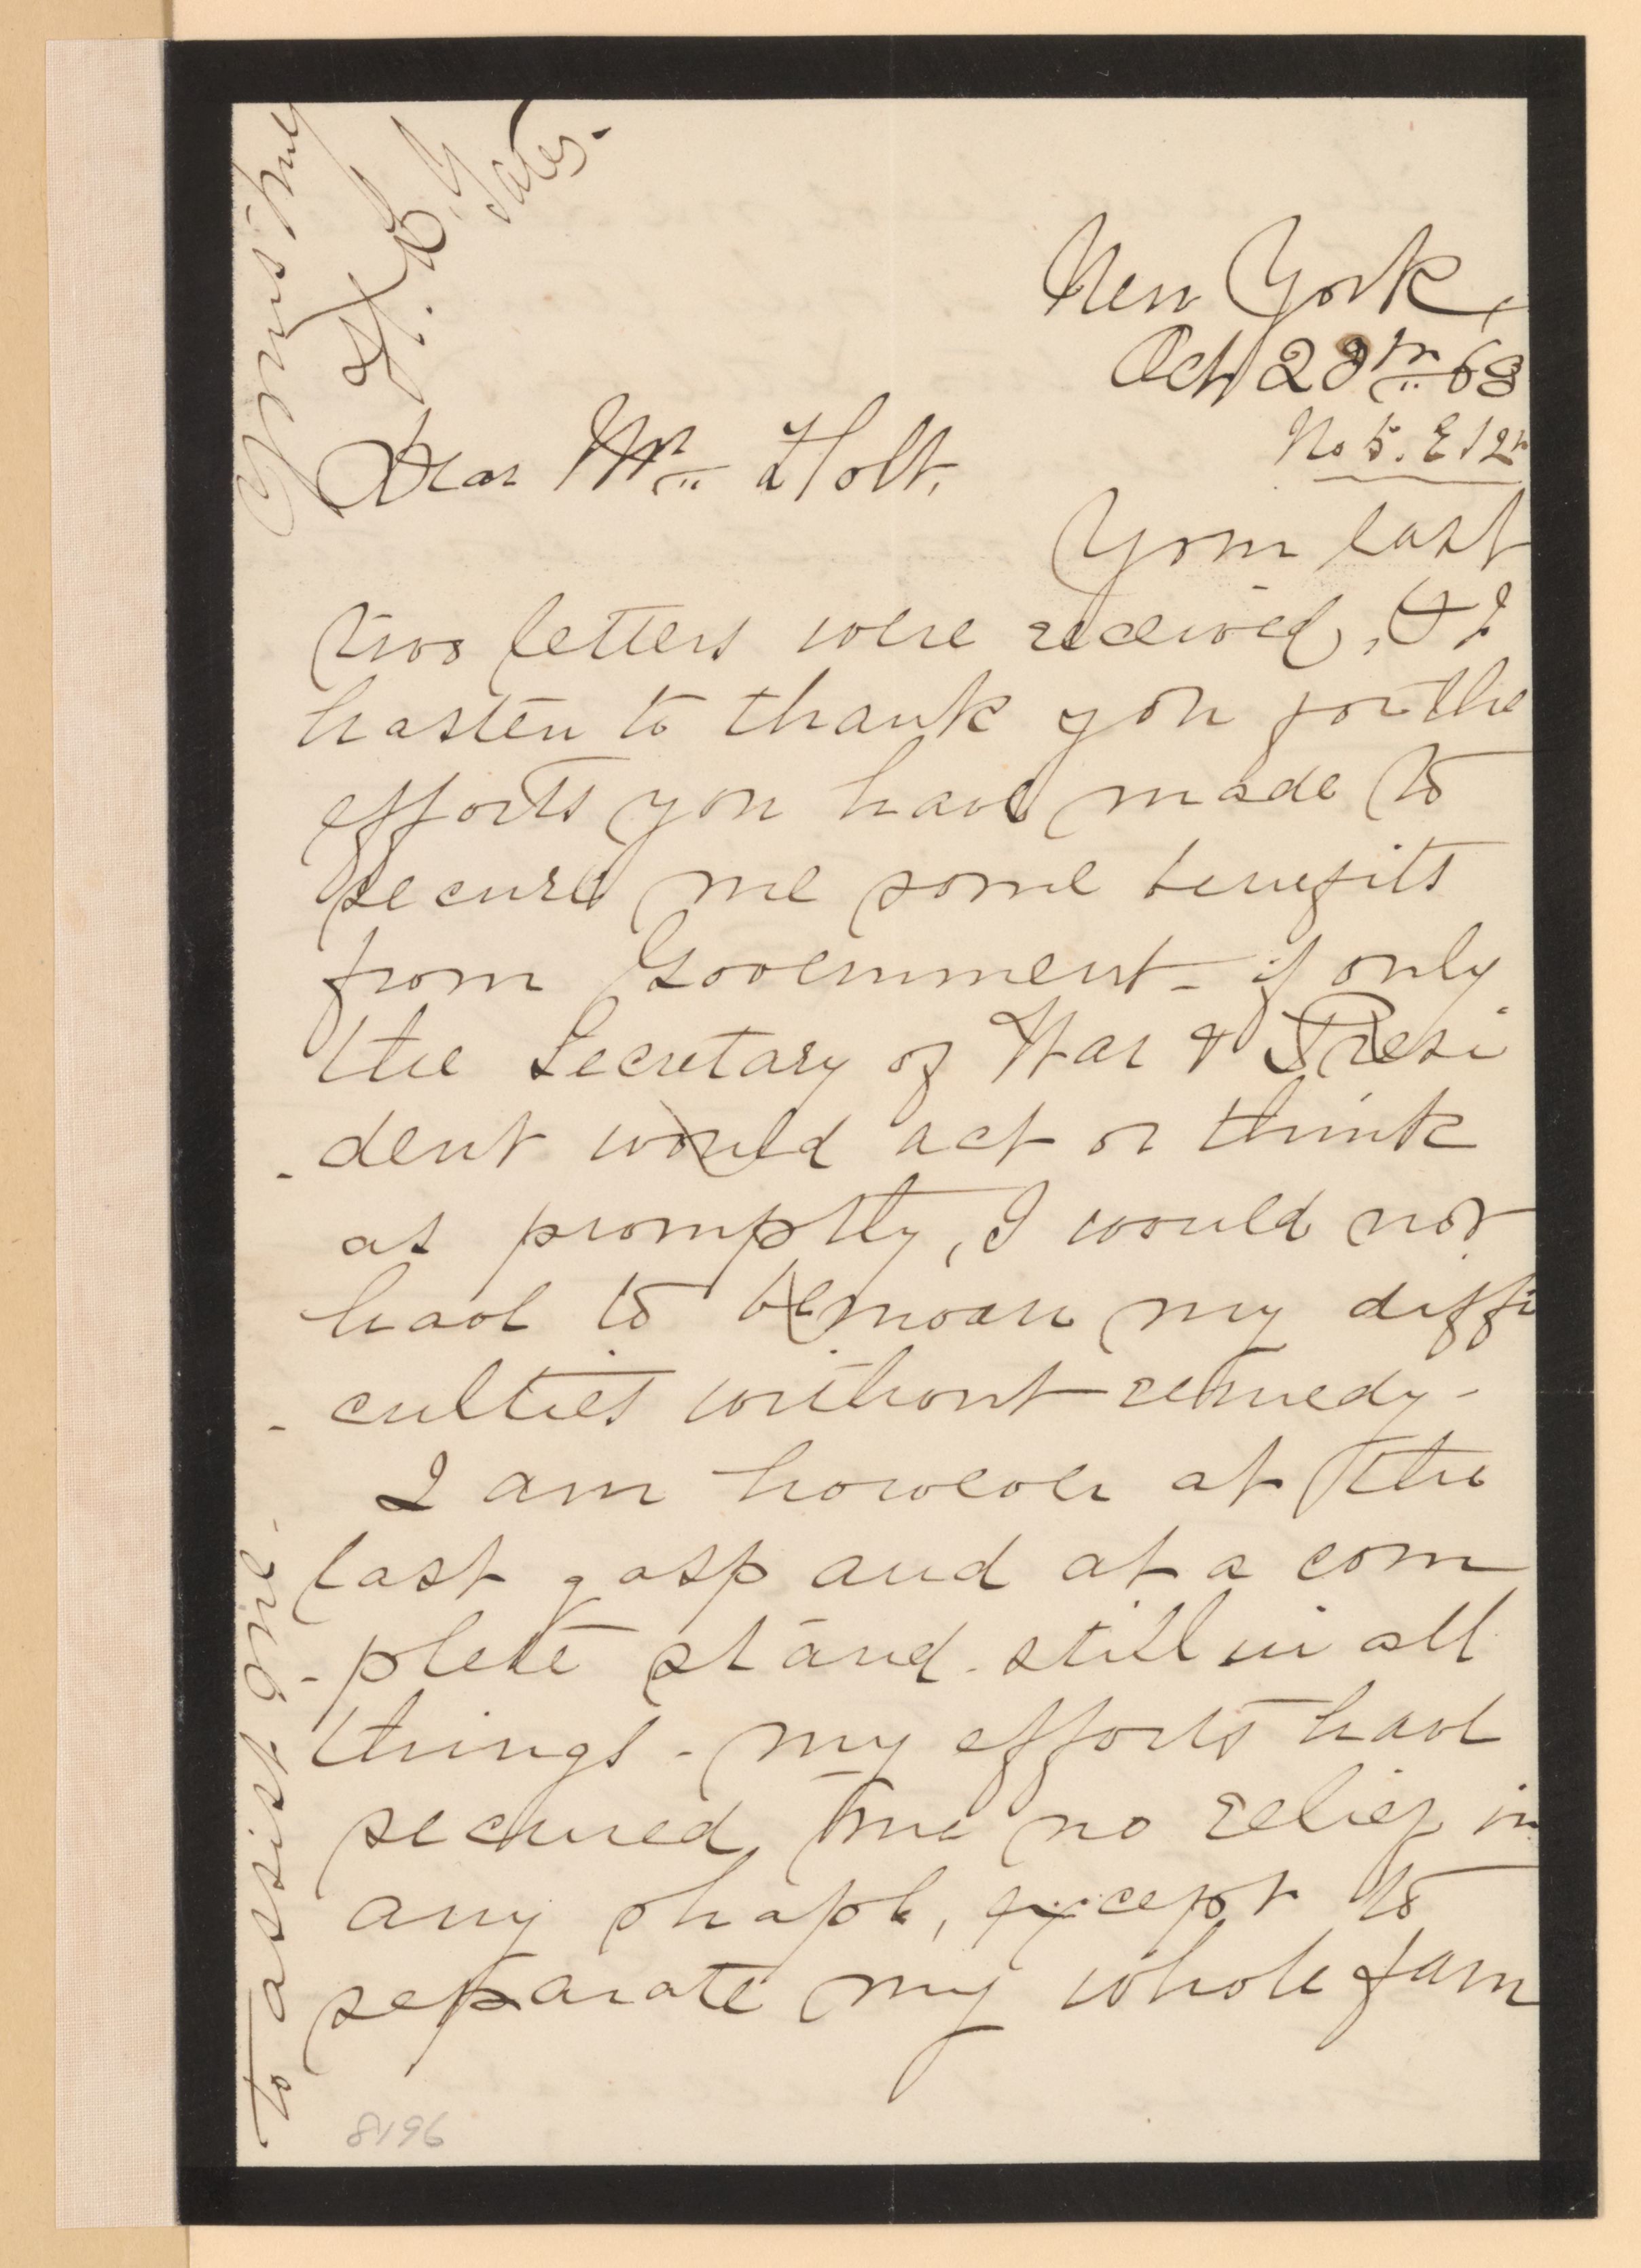 New York,
Oct 28th 68
No 5. E 12th
Dear Mr. Holt,
Your last
two letters were received, & I
hasten to thank you for the
efforts you have made to
secure me some benefits
from Government - if only
the Secretary of War & Presi
-dent would act or think
as promptly, I would not
have to bemoan my diffi
-culties without remedy -
I am however at the
last gasp and at a com
-plete stand-still in all
things - my efforts have
secured me no relief in
any shape, except to
separate my whole fam
to assist me -
Yours truly
Yates.
8196